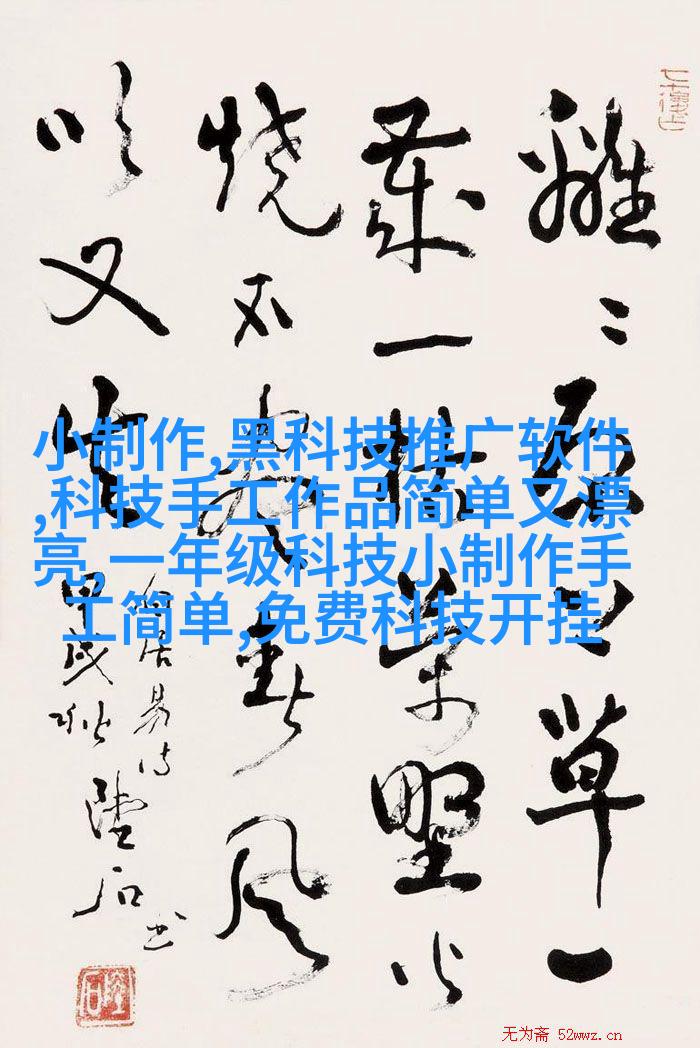 離〻原上草一
歲一枯榮野火
燒不盡春風
吹又生
白居易詩
甲戌秋
石書
小制作,黑科技推广软件
,科技手工作品简单又漂
亮,一年级科技小制作手
工简单,免费科技开挂
无为斋 52wwz.cn